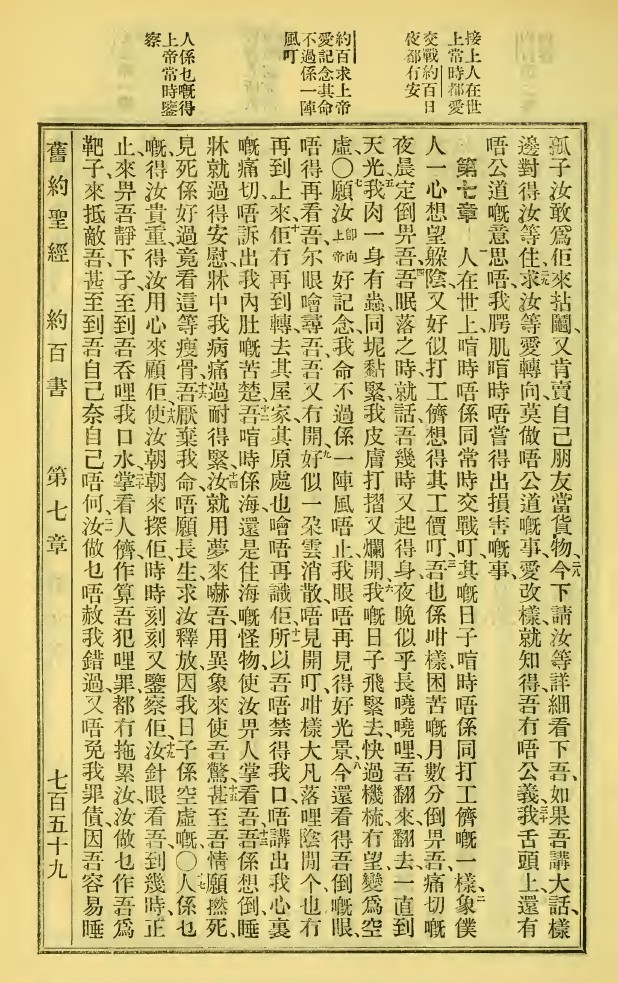 接上人在世
上常時都愛
交戰約百日
夜都冇安
約百求上帝
愛記念其命
不過係一陣
風叮
人係乜嘅得
上帝常時鑒
察
孤子汝敢爲佢來拈鬮、又肯賣自己朋友當貨物、二八今下請汝等詳細看下吾、如果吾講大話、樣
邊對得汝等住、二九求汝等愛轉向、莫做唔公道嘅事、愛改樣、就知得吾冇唔公義、三十我舌頭上還有
唔公道嘅意思唔、我腭肌喧時唔嘗得出損害嘅事、
第七章 一人在世上喧時唔係同常時交戰叮、其嘅日子喧時唔係同打工儕嘅一樣、二象僕
人一心想望躲陰、又好似打工儕想得其工價叮、三吾也係咁樣、困苦嘅月數分倒畀吾、痛切嘅
夜晨定倒畀吾、四吾眠落之時就話、吾幾時又起得身、夜晚似乎長嘵嘵哩、吾翻來翻去、一直到
天光、五我肉一身有蟲同坭黏緊、我皮膚打摺又爛開、六我嘅日子飛緊去、快過機梳、冇望變爲空
虛、〇七願汝卽向上帝好記念、我命不過係一陣風唔止、我眼唔再見得好光景、八今還看得吾倒嘅眼、
唔得再看吾、尔眼噲尋吾、吾又冇開、九好似一朶雲消散、唔見開叮、咁樣大凡落哩陰間个、也冇
再到上來、十佢冇再到轉去其屋家、其原處也噲唔再識佢、十一所以吾唔禁得我口、唔講出我心裏
嘅痛切、唔訴出我內肚嘅苦楚、十二吾喧時係海、還是住海嘅怪物、使汝畀人掌看吾、十三吾係想倒、睡
牀就過得安慰、牀中我病痛過耐得緊、十四汝就用夢來嚇吾、用異象來使吾驚、十五甚至吾情願撚死、
見死係好過竟看這等瘦骨、十六吾厭棄我命、唔願長生、求汝釋放、因我日子係空虛嘅、〇十七人係乜
嘅、得汝貴重、得汝用心來顧佢、十八使汝朝朝來探佢、時時刻刻又鑒察佢、十九汝針眼看吾到幾時正
止、來畀吾靜下子、至到吾吞哩我口水、二十掌看人儕、作算吾犯哩罪、都冇拖累汝、汝做乜作吾爲
靶子來抵敵吾、甚至到吾自己奈自己唔何、二一汝做乜唔赦我錯過、又唔免我罪債、因吾容易睡
舊約聖經 約百書 第七章 七百五十九